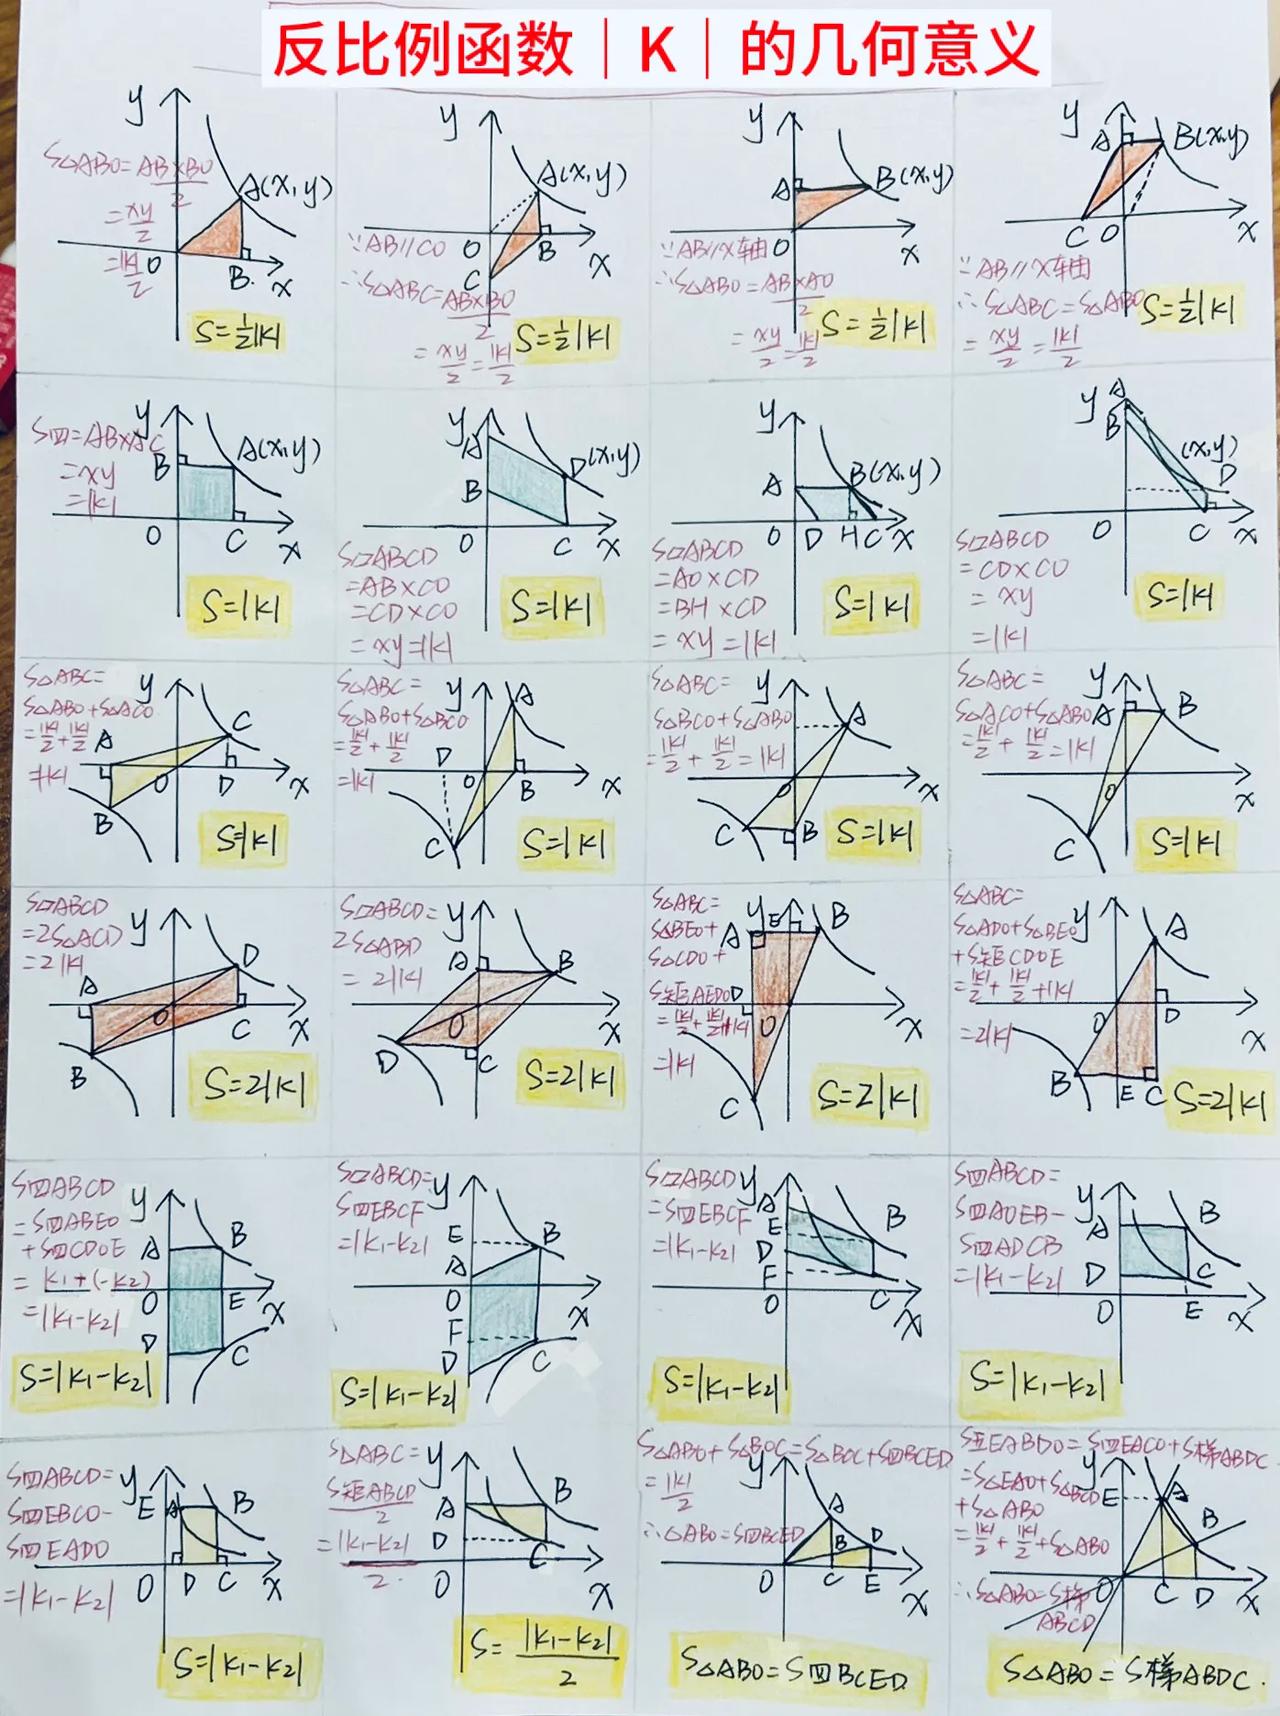 反比例函数｜K｜的几何意义
S△ABO=AB×BO/2
=xy/2
=|k|/2
y
A(x,y)
O
B
x
S=½|k|
y
A(x,y)
∵AB//CO
O
B
x
C
∴S△ABC=AB×BO/2
=xy/2=|k|/2
S=½|k|
y
A
B(x,y)
∵AB//x轴
O
x
∴S△ABO=AB×AO/2
=xy/2=|k|/2
S=½|k|
y
A
B(x,y)
C
O
x
∵AB//x轴
∴S△ABC=S△ABO
=xy/2=|k|/2
S=½|k|
S四=AB×AC
=xy
=|k|
y
B
A(x,y)
O
C
x
S=|k|
y
A
D(x,y)
B
O
C
x
S▱ABCD
=AB×CO
=CD×CO
=xy=|k|
S=|k|
y
A
B(x,y)
O
D
H
C
x
S▱ABCD
=AO×CD
=BH×CD
=xy=|k|
S=|k|
y
A
B
(x,y)
D
O
C
x
S▱ABCD
=CD×CO
=xy
=|k|
S=|k|
S△ABC=
S△ABO+S△ACO
=|k|/2+|k|/2
=|k|
y
A
C
O
D
x
B
S=|k|
S△ABC=
S△ABO+S△BCO
=|k|/2+|k|/2
=|k|
y
A
D
O
B
x
C
S=|k|
S△ABC=
S△BCO+S△ABO
=|k|/2+|k|/2=|k|
y
A
O
x
C
B
S=|k|
S△ABC=
S△ACO+S△ABO
=|k|/2+|k|/2=|k|
y
A
B
O
x
C
S=|k|
S▱ABCD
=2S△ACD
=2|k|
y
D
A
O
C
x
B
S=2|k|
S▱ABCD=
2S△ABD
=2|k|
y
A
B
O
x
D
C
S=2|k|
S△ABC=
S△BEO+
S△CDO+
S矩AEOD
=|k|/2+|k|/2+|k|
=|k|
y
E
B
A
D
O
x
C
S=2|k|
S△ABC=
S△ADO+S△BEO
+S矩CDOE
=|k|/2+|k|/2+|k|
=2|k|
y
A
O
D
x
B
E
C
S=2|k|
S四ABCD
=S四ABEO
+S四CDOE
=k₁+(-k₂)
=|k₁-k₂|
y
A
B
O
E
x
D
C
S=|k₁-k₂|
S▱ABCD=
S四EBCF
=|k₁-k₂|
y
E
B
A
O
x
F
D
C
S=|k₁-k₂|
S▱ABCD
=S四EBCF
=|k₁-k₂|
y
A
E
B
D
F
O
C
x
S=|k₁-k₂|
S四ABCD=
S四AOEB-
S四ADCB
=|k₁-k₂|
y
A
B
D
C
O
E
x
S=|k₁-k₂|
S四ABCD=
S四EBCO-
S四EADO
=|k₁-k₂|
y
E
A
B
O
D
C
x
S=|k₁-k₂|
S△ABC=
S矩ABCD/2
=|k₁-k₂|/2
y
A
B
D
C
O
x
S=|k₁-k₂|/2
S△ABO+S△BOC=S△BOC+S四BCED
=|k|/2
∴△ABO=S四BCED
y
A
B
D
O
C
E
x
S△ABO=S四BCED
S五EABDO=S四EACO+S梯ABDC
=S△EAO+S△BCD
+S△ABO
=|k|/2+|k|/2+S△ABO
∴S△ABO=S梯
ABCD
y
E
A
B
O
C
D
x
S△ABO=S梯ABDC.